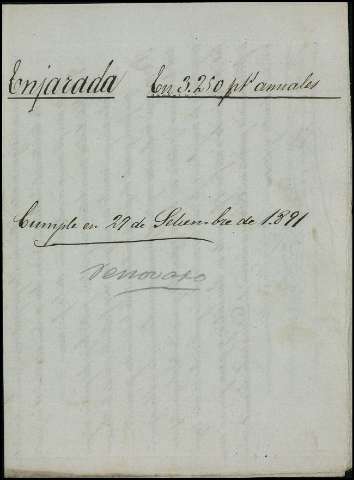 Enjarada En 3.250 pts annales
Cumple en 29 de Setiembre de 1.891
Renovado